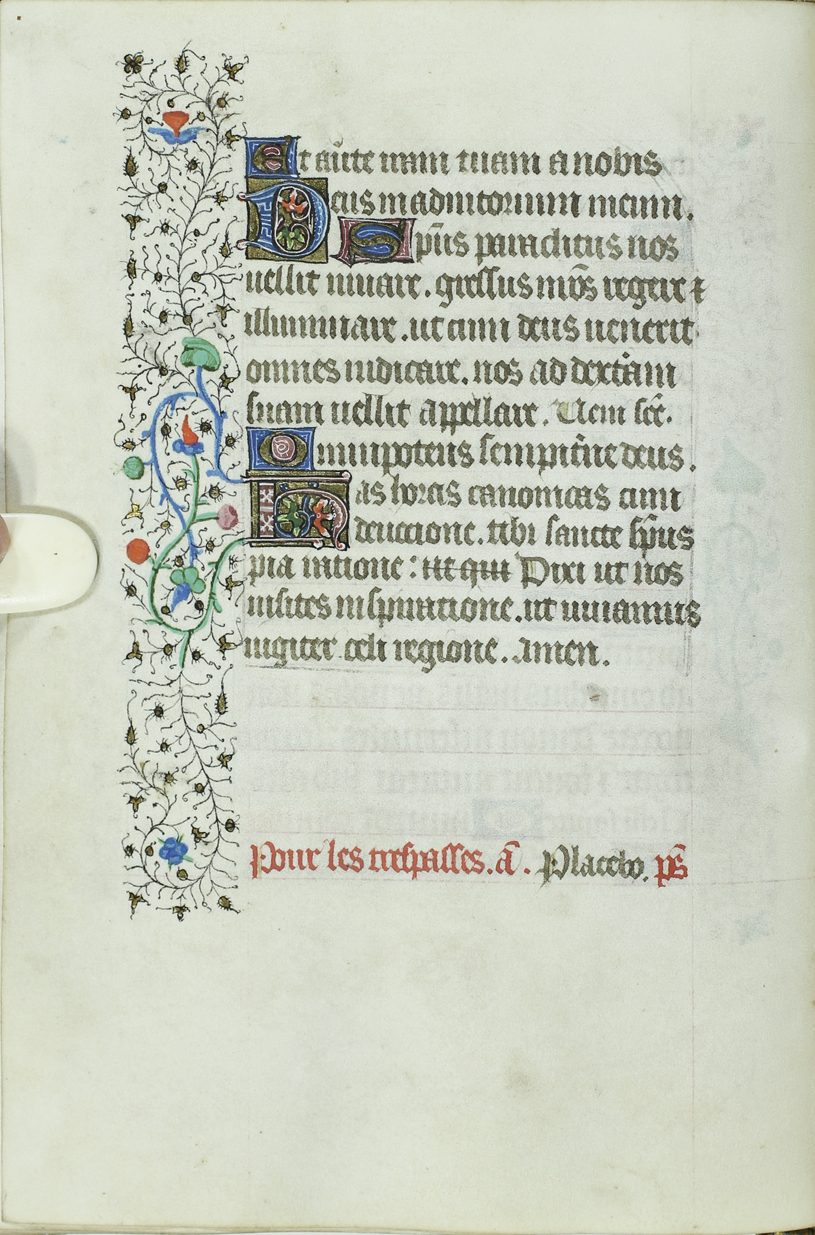 Et aũte iram tuam a nobis
Deus in adiutorium meum.
Spũs paraclitus nos
uellit iuuare. gressus nr̃os regere ⁊
illuminare. ut cum deus uenerit
omnes iudicare. nos ad dextãm
suam uellit appellare. Uem sc̃e.
Omnipotens sempitr̃ne deus.
Has horas canonicas cum
deuccione. tibi sancte sp̃us
pia racione: ut qui Dixi ut nos
uisites inspiracione. ut uiuamus
iugiter celi regione. Amen.
Pour les trespasses. ã. Placebo. ps̃